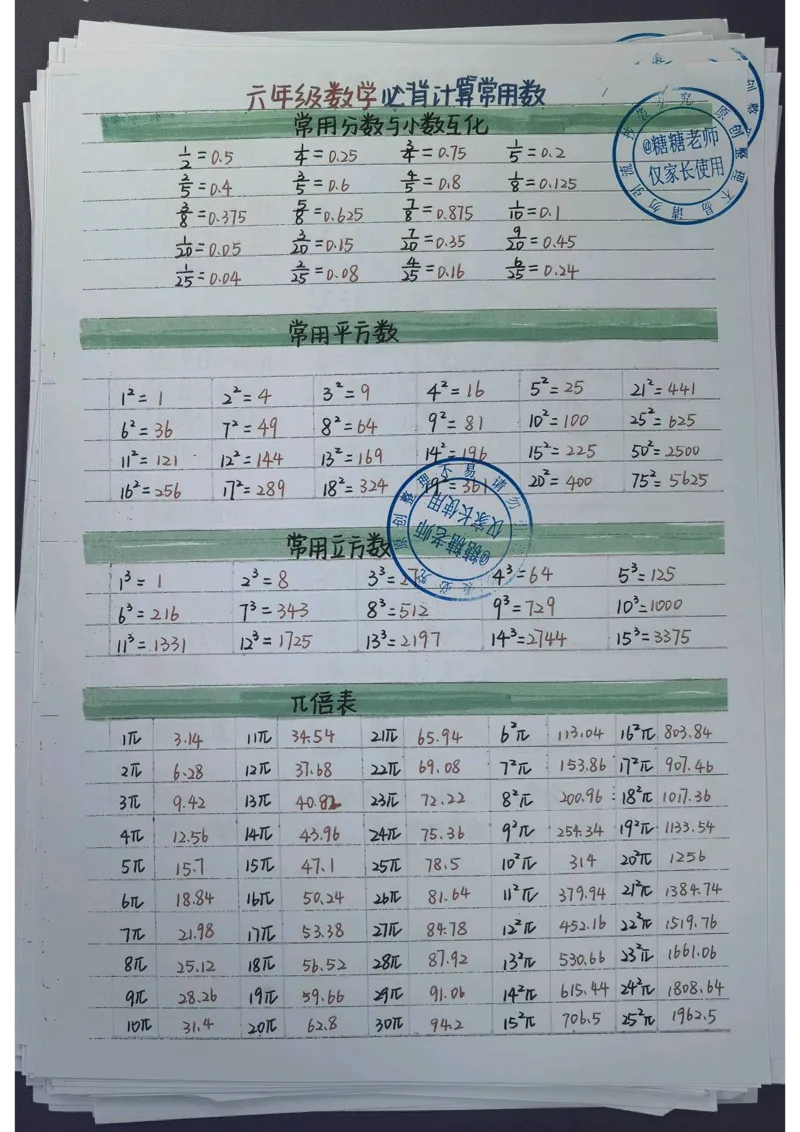 六年级数学必背计算常用数
常用分数与小数互化
1/2=0.5 1/4=0.25 3/4=0.75 1/5=0.2
2/5=0.4 3/5=0.6 4/5=0.8 1/8=0.125
3/8=0.375 5/8=0.625 7/8=0.875 1/10=0.1
1/20=0.05 3/20=0.15 7/20=0.35 9/20=0.45
1/25=0.04 2/25=0.08 4/25=0.16 6/25=0.24
@糖糖老师
仅家长使用
原创整理不易请勿引流抄袭必究
常用平方数
1²=1 2²=4 3²=9 4²=16 5²=25 21²=441
6²=36 7²=49 8²=64 9²=81 10²=100 25²=625
11²=121 12²=144 13²=169 14²=196 15²=225 50²=2500
16²=256 17²=289 18²=324 19²=361 20²=400 75²=5625
@糖糖老师
仅家长使用
原创整理不易请勿
常用立方数
1³=1 2³=8 3³=27 4³=64 5³=125
6³=216 7³=343 8³=512 9³=729 10³=1000
11³=1331 12³=1725 13³=2197 14³=2744 15³=3375
π倍表
1π 3.14 11π 34.54 21π 65.94 6²π 113.04 16²π 803.84
2π 6.28 12π 37.68 22π 69.08 7²π 153.86 17²π 907.46
3π 9.42 13π 40.82 23π 72.22 8²π 200.96 18²π 1017.36
4π 12.56 14π 43.96 24π 75.36 9²π 254.34 19²π 1133.54
5π 15.7 15π 47.1 25π 78.5 10²π 314 20²π 1256
6π 18.84 16π 50.24 26π 81.64 11²π 379.94 21²π 1384.74
7π 21.98 17π 53.38 27π 84.78 12²π 452.16 22²π 1519.76
8π 25.12 18π 56.52 28π 87.92 13²π 530.66 23²π 1661.06
9π 28.26 19π 59.66 29π 91.06 14²π 615.44 24²π 1808.64
10π 31.4 20π 62.8 30π 94.2 15²π 706.5 25²π 1962.5